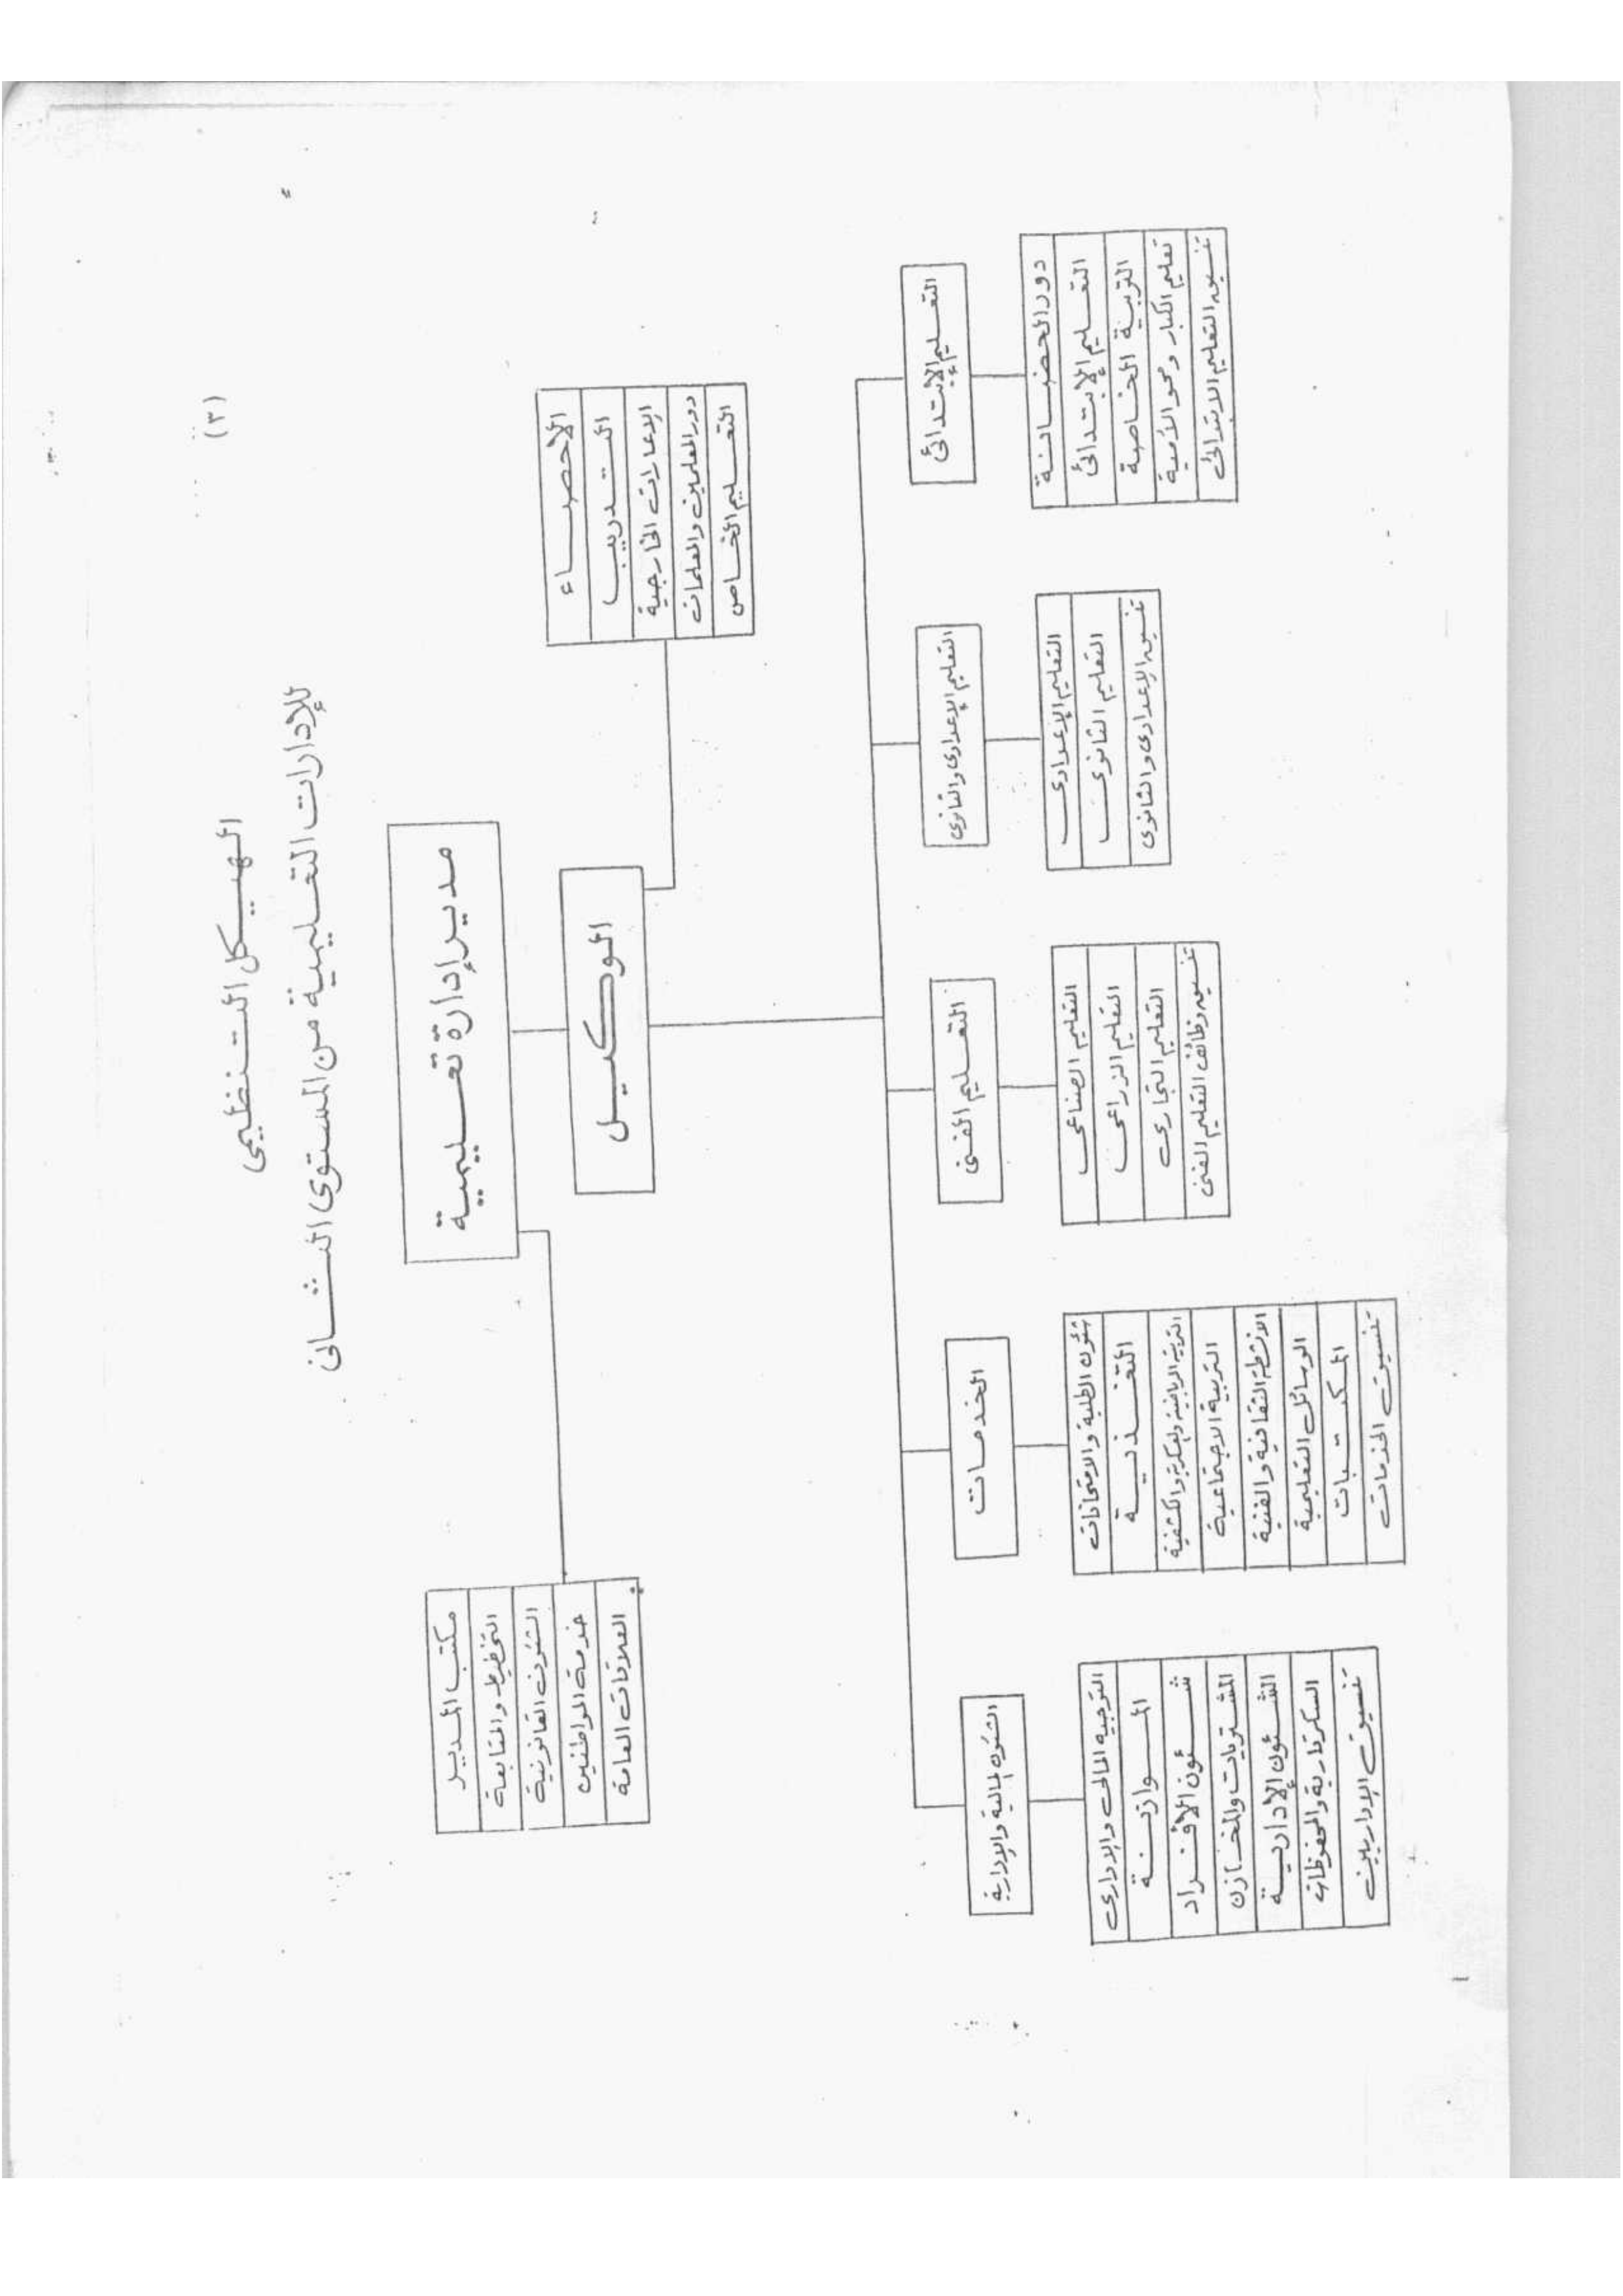 (٣)
الهيكل التنظيمى
للإدارات التعليمية من المستوى الثانى
مدير إدارة تعليمية
الوكيل
الاحصاء
التدريب
الإعارات الخارجية
دور المعلمين والمعلمات
التعليم الخاص
مكتب المدير
التخطيط والمتابعة
الشئون القانونية
خدمة المواطنين
العلاقات العامة
التعليم الإبتدائى
دور الحضانة
التعليم الإبتدائى
التربية الخاصة
تعليم الكبار ومحو الأمية
تنسيق التعليم الابتدائى
التعليم الإعدادى والثانوى
التعليم الإعدادى
التعليم الثانوى
تنسيق الإعدادى والثانوى
التعليم الفنى
التعليم الصناعى
التعليم الزراعى
التعليم التجارى
تنسيق وظائف التعليم الفنى
الخدمات
شئون الطلبة والامتحانات
التغذية
التربية الرياضية والعسكرية والكشفية
التربية الاجتماعية
الانشطة الثقافية والفنية
الوسائل التعليمية
المكتبات
تنسيق الخدمات
الشئون المالية والإدارية
التوجيه المالى والإدارى
الموازنة
شئون الأفراد
المشتريات والمخازن
الشئون الإدارية
السكرتارية والمحفوظات
تنسيق الإداريين